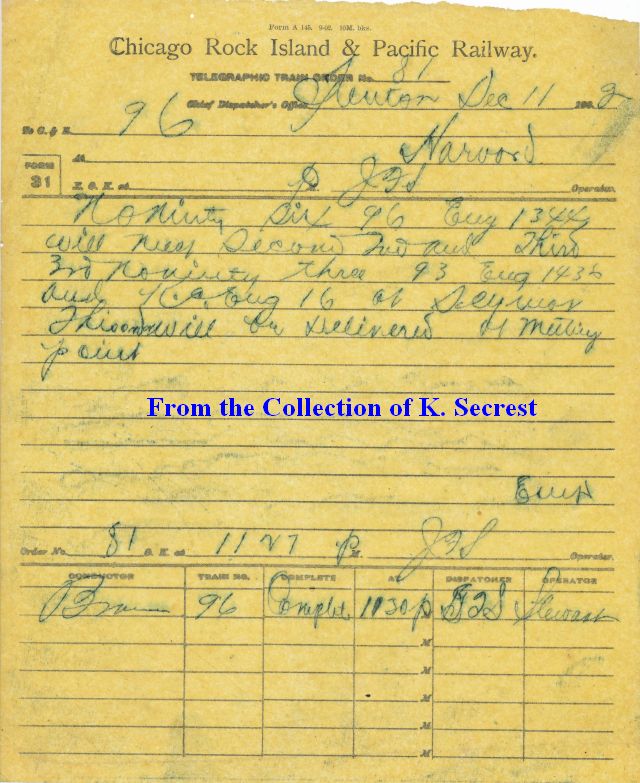 Form A 145. 9-02. 10M. bks.
Chicago Rock Island & Pacific Railway.
TELEGRAPHIC TRAIN ORDER No. 81
Chief Dispatcher's Office Dec 11 1902
To C. & E. 96
At Harvord
FORM 31
X. O. K. at P M. JFS Operator.
No ninty Six 96 Eng 1344
will meet Second 2nd and Third
3rd No ninty three 93 Eng 1436
and Eng 16 at Seymor
This will be delivered at Meeting
point
From the Collection of K. Secrest
Order No. 81 O. K. at 11 27 P M. JFS Operator.
CONDUCTOR TRAIN NO. COMPLETE AT DISPATCHER OPERATOR
96 Complete 11 30 P JFS Stewart
M
M
M
M
M